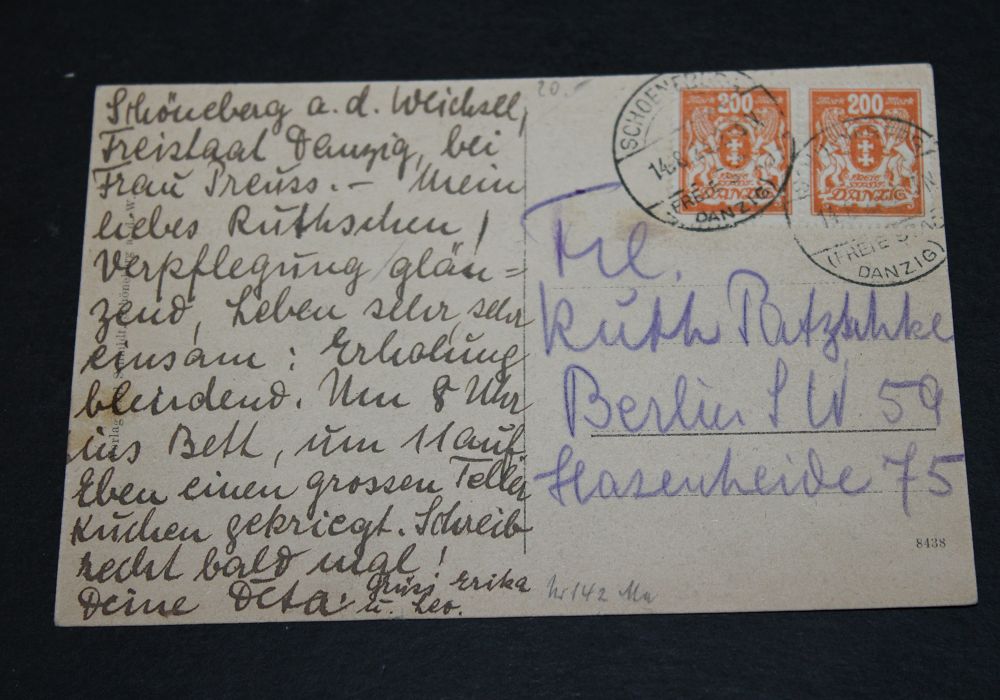 Schöneberg a. d. Weichsel,
Freistaat Danzig, bei
Frau Preuss. – Mein
liebes Ruthschen!
Verpflegung glän=
zend, Leben sehr, sehr
einsam: Erholung
blendend. Um 8 Uhr
ins Bett, um 11 auf
Eben einen grossen Teller
Kuchen gekriegt. Schreib
recht bald mal!
Deine Deta. Gruss Erika
u. Leo.
20.-
200
Mark
DANZIG
200
Mark
DANZIG
14.8
(FREIE
DANZIG)
(FREIE
DANZIG)
Frl.
Ruth Patzschke
Berlin SW 59
Hasenheide 75
8438
Nr 142